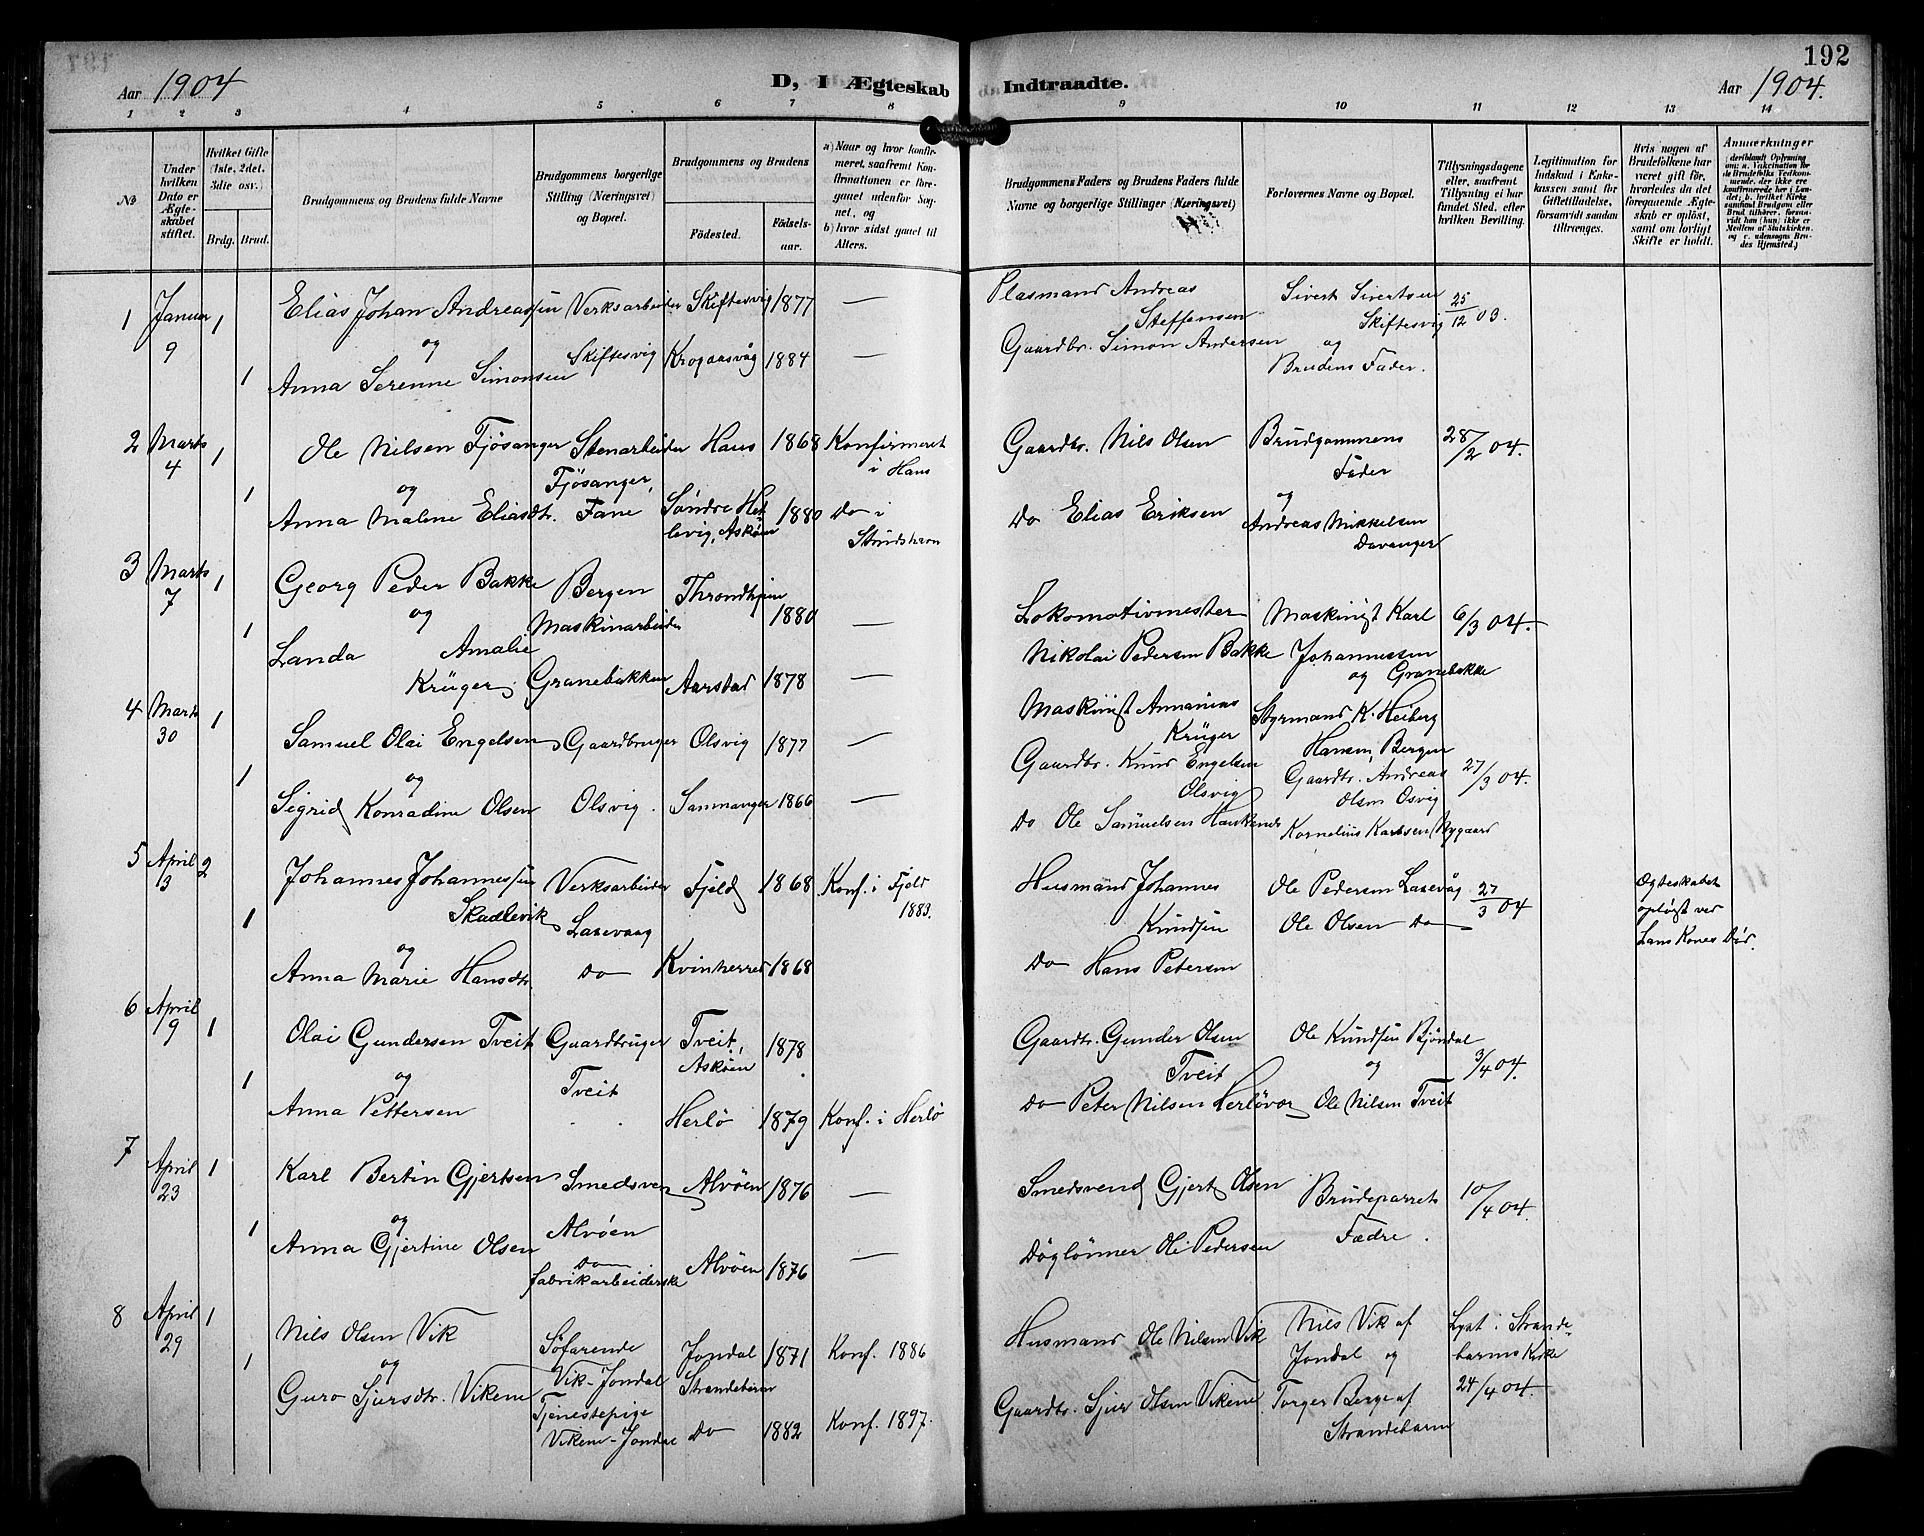 192
Aar 1904
D, I Ægteskab Indtraadte.
Aar 1904.
1 2 3 4 5 6 7 8 9 10 11 12 13 14
No
Under hvilken Dato er Ægteskabet stiftet.
Hvilket Gifte (1ste, 2det, 3die osv.)
Brdg. Brud.
Brudgommens og Brudens fulde Navne
Brudgommens borgerlige Stilling (Næringsvei) og Bopæl.
Brudgommens og Brudens
Fødested.
Fødselsaar.
a) Naar og hvor konfirmeret, saafremt Konfirmationen er foregaaet udenfor Sognet, og
b) hvor sidst gaaet til Alters.
Brudgommens Faders og Brudens Faders fulde Navne og borgerlige Stillinger (Næringsvei)
Forlovernes Navne og Bopæl.
Tillysningsdagene eller, saafremt Tillysning ei har fundet Sted, efter hvilken Bevilling.
Legitimation for Indskud i Enkekassen samt for Giftetilladelse, forsaavidt saadan tiltrænges.
Hvis nogen af Brudefolkene har været gift før, hvorledes da det foregaaende Ægteskab er opløst, samt om lovligt Skifte er holdt.
Anmærkninger
(deriblandt Oplysning om: a. Vakcination for de Brudefolks Vedkommende, der ikke er konfirmerede her i Landet; b. hvilket Kirkesamfund Brudgom eller Brud tilhører, forsaavidt han (hun) ikke er Medlem af Statskirken, og c. udensogns Brudes Hjemsted.)
1 Januar 9 1 Elias Johan Andreassen Verksarbeider Skiftesvig 1877 — Plasmand Andreas Steffensen Sivert Sivertsen Skiftesvig 25/12 03.
og
1 Anna Serenne Simonsen Skiftesvig Krogaasvåg 1884 — Gaardbr. Simon Andersen og Brudens Fader.
2 Marts 4 1 Ole Nilsen Fjösanger Stenarbeider Haus 1868 Konfirmeret i Haus Gaardbr. Nils Olsen Brudgommens Fader 28/2 04.
og Fjösanger,
1 Anna Malene Eliasdtr. Fane Søndre Hetlevig, Askøen 1880 Do i Strudshavn Do Elias Eriksen og Andreas Mikkelsen Davanger
3 Marts 7 1 Georg Peder Bakke Bergen Maskinarbeider Throndhjem 1880 — Lokomotivmester Nikolai Pedersen Bakke Maskinist Karl Johannessen Granebakke 6/3 04.
og
1 Landa Amalie Krüger. Granebakken Aarstad 1878 — Maskinist Annanias Krüger og Styrmand K. Heiberg Hansen, Bergen
4 Marts 30 1 Samuel Olai Engelsen Gaardbruger Olsvig 1877 — Gaardbr. Knud Engelsen Olsvig Gaardbr. Andreas Olsen Osvig 27/3 04.
og
1 Sigrid Konradine Olsen Olsvig. Sammanger 1866 — Do Ole Samuelsen Kornelius Karlsen Nygaard
5 April 3 2 Johannes Johannessen Skaalevik Verksarbeider Laxevaag Fjeld 1868 Konf. i Fjeld 1883. Husmand Johannes Knudsen Ole Pedersen Laxevåg 27/3 04 Ægteskabet opløst ved
og
1 Anna Marie Hansdtr. Do Kvinherred 1868 Do Hans Petersen Ole Olsen Do
6 April 9 1 Olai Gundersen Tveit Gaardbruger Tveit Tveit, Askøen 1878 Gaardbr. Gunder Olsen Tveit Ole Knudsen Bjöndal 3/4 04.
og
1 Anna Pettersen Herlö 1879 Konf. i Herlö Do Peter Nilsen Herløvær og Ole Nilsen Tveit
7 April 23 1 Karl Bertin Gjertsen Smedsvend Alvøen Alvøen 1876 — Smedsvend Gjert Olsen Brudeparrets Fædre. 10/4 04.
og
1 Anna Gjertine Olsen Do fabrikarbeiderske Alvøen 1876 — Døglønner Ole Pedersen
8 April 29 1 Nils Olsen Vik Søfarende Vik-Jondal Jondal 1871 Konf. 1886 Husmand Ole Nilsen Vik Nils Vik af Jondal og Lyst i Strandebarms Kirke
og
1 Guro Sjursdtr. Vikene Tjenestepige Vikene-Jondal Strandebarm Do 1882 Konf. 1897. Gaardbr. Sjur Olsen Vikene Torger Berge af Strandebarm 24/4 04.